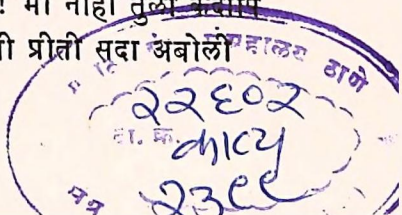 मी नाही तुला कदापि
प्रीती सदा अबोली
ग्रहालय ठाणे
२२६०२
दा. क्र.
काव्य
२३९९